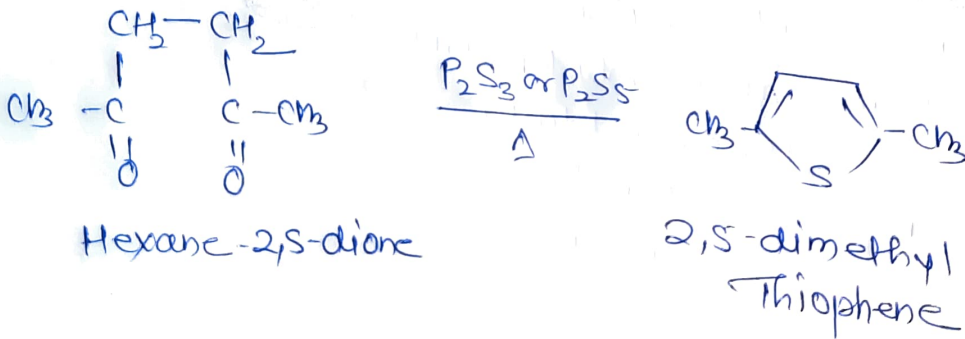 CH₂ — CH₂
CH₃ - C C - CH₃
O O
P₂S₃ or P₂S₅
Δ
CH₃ - CH₃
S
Hexane-2,5-dione
2,5-dimethyl
Thiophene